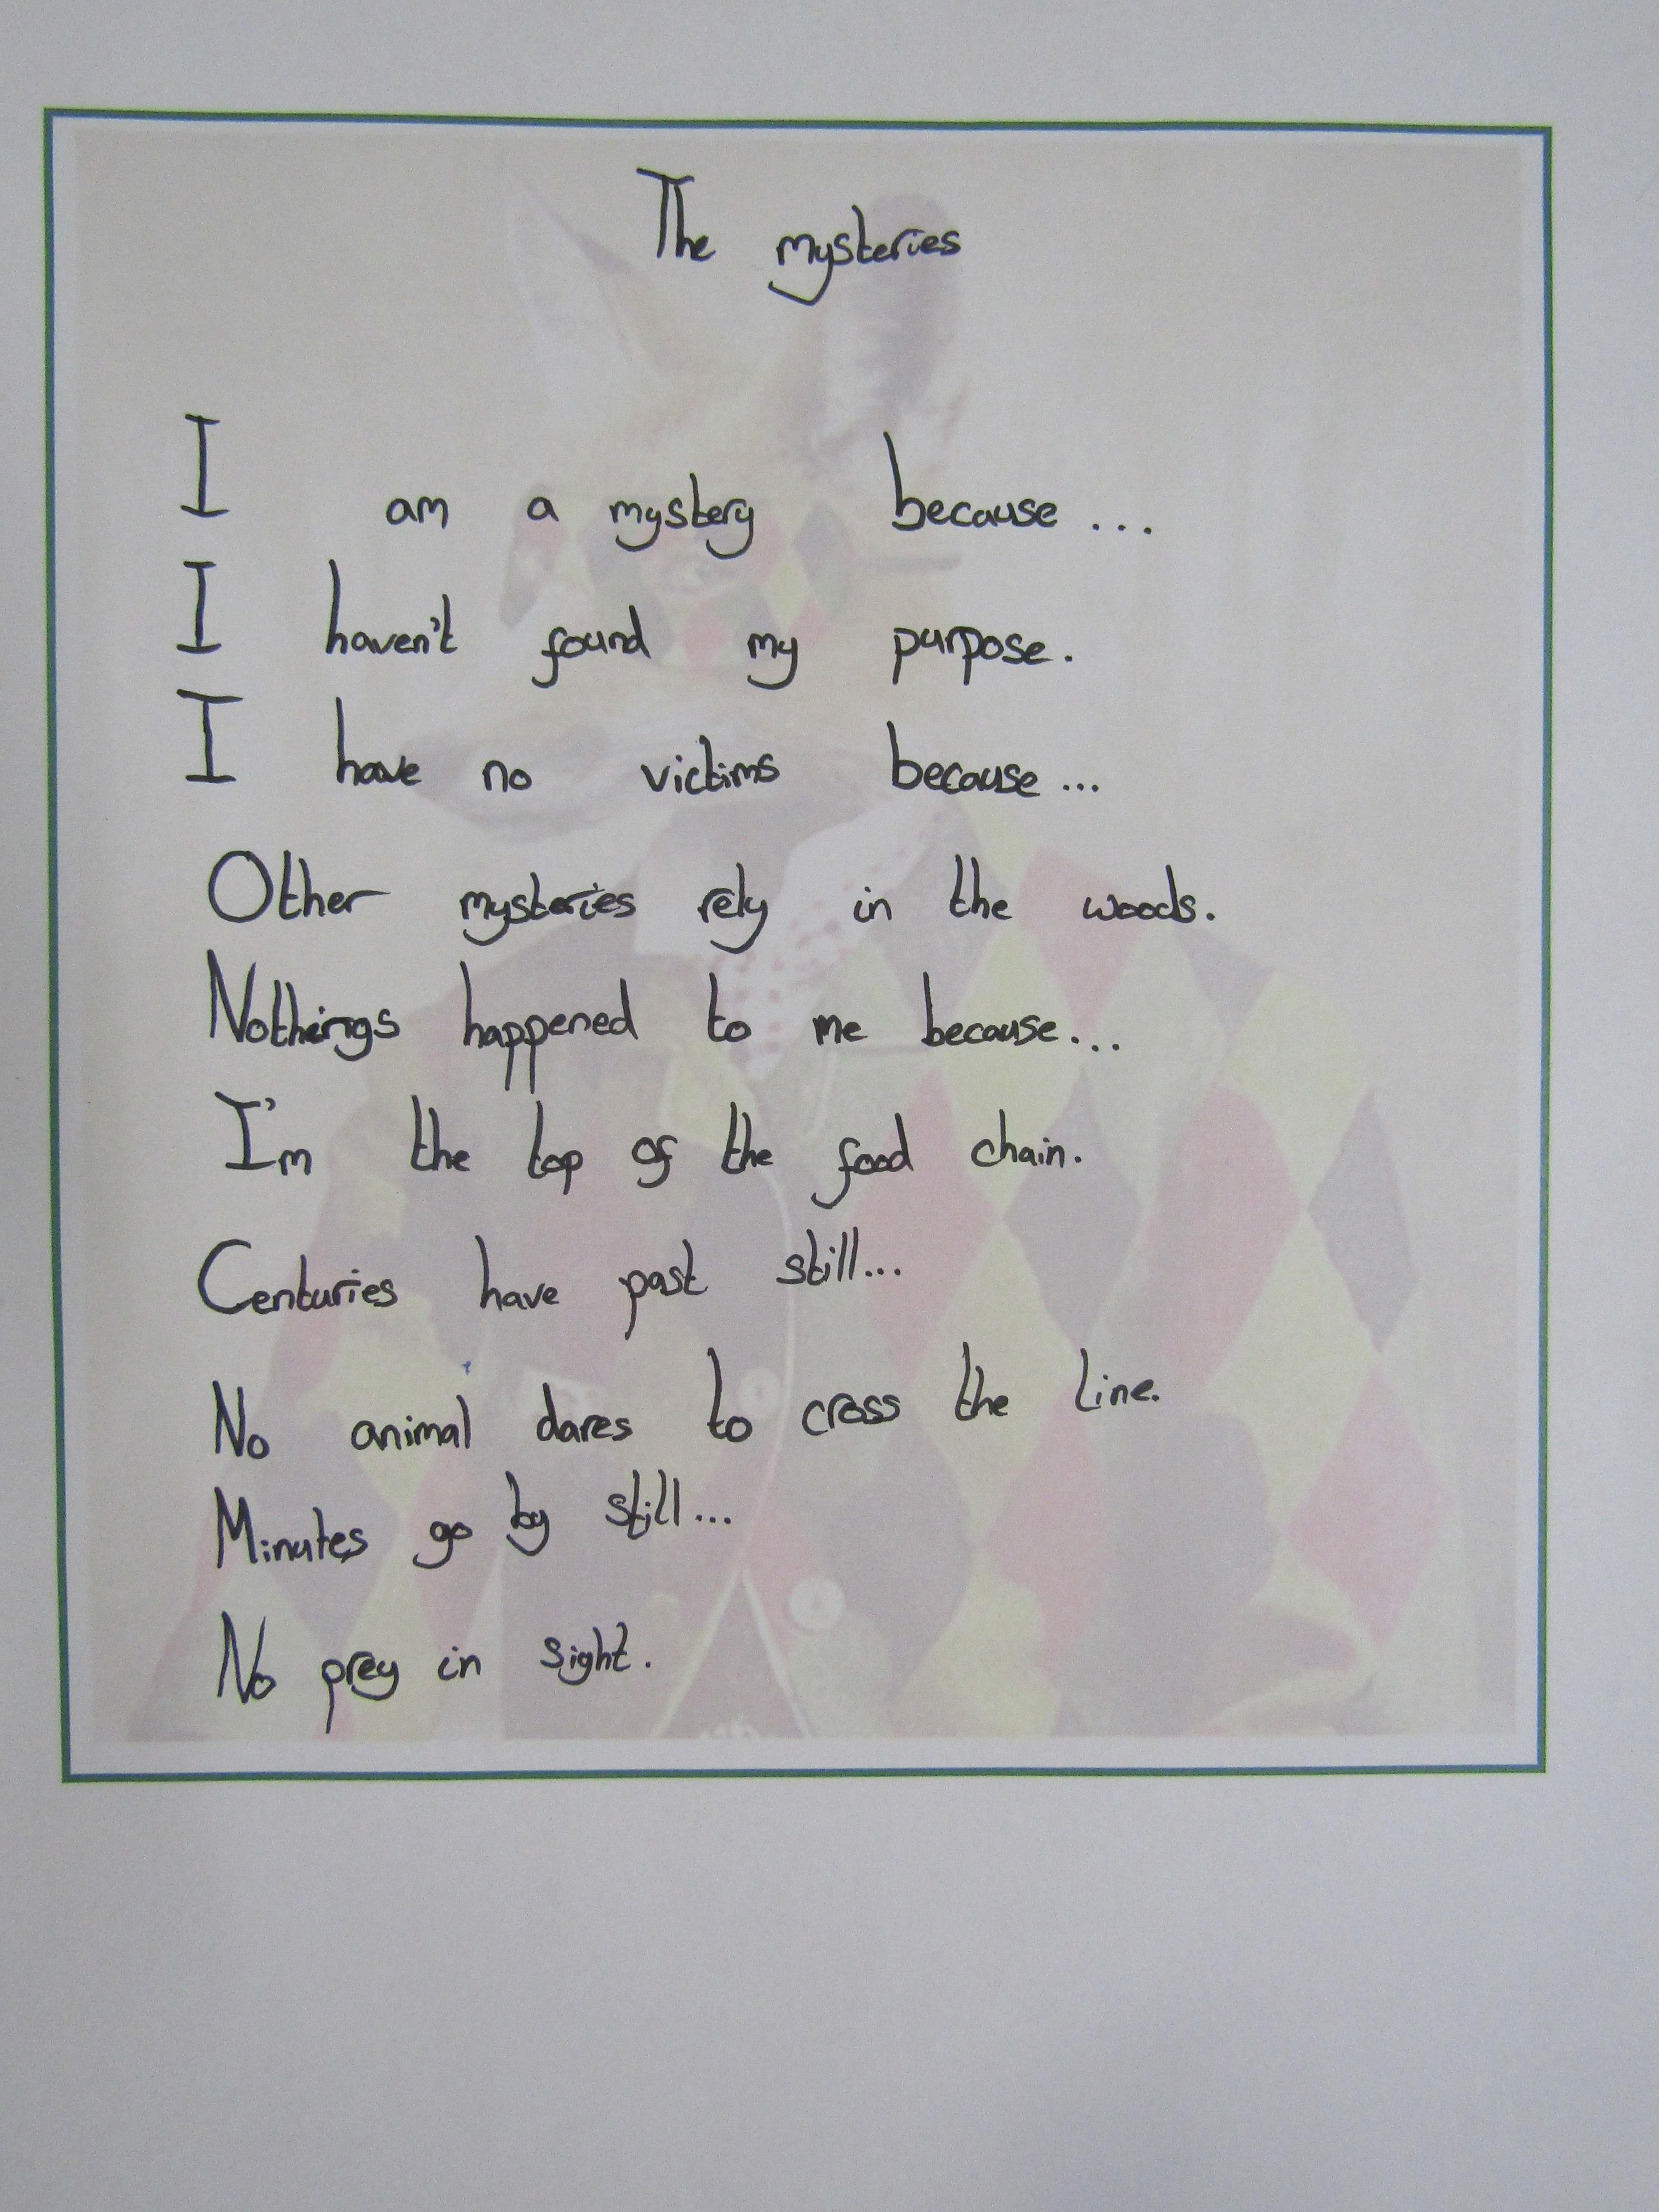 The mysteries
I am a mystery because...
I haven't found my purpose.
I have no victims because...
Other mysteries rely in the woods.
Nothings happened to me because...
I'm the top of the food chain.
Centuries have past still...
No animal dares to cross the line.
Minutes go by still...
No prey in sight.